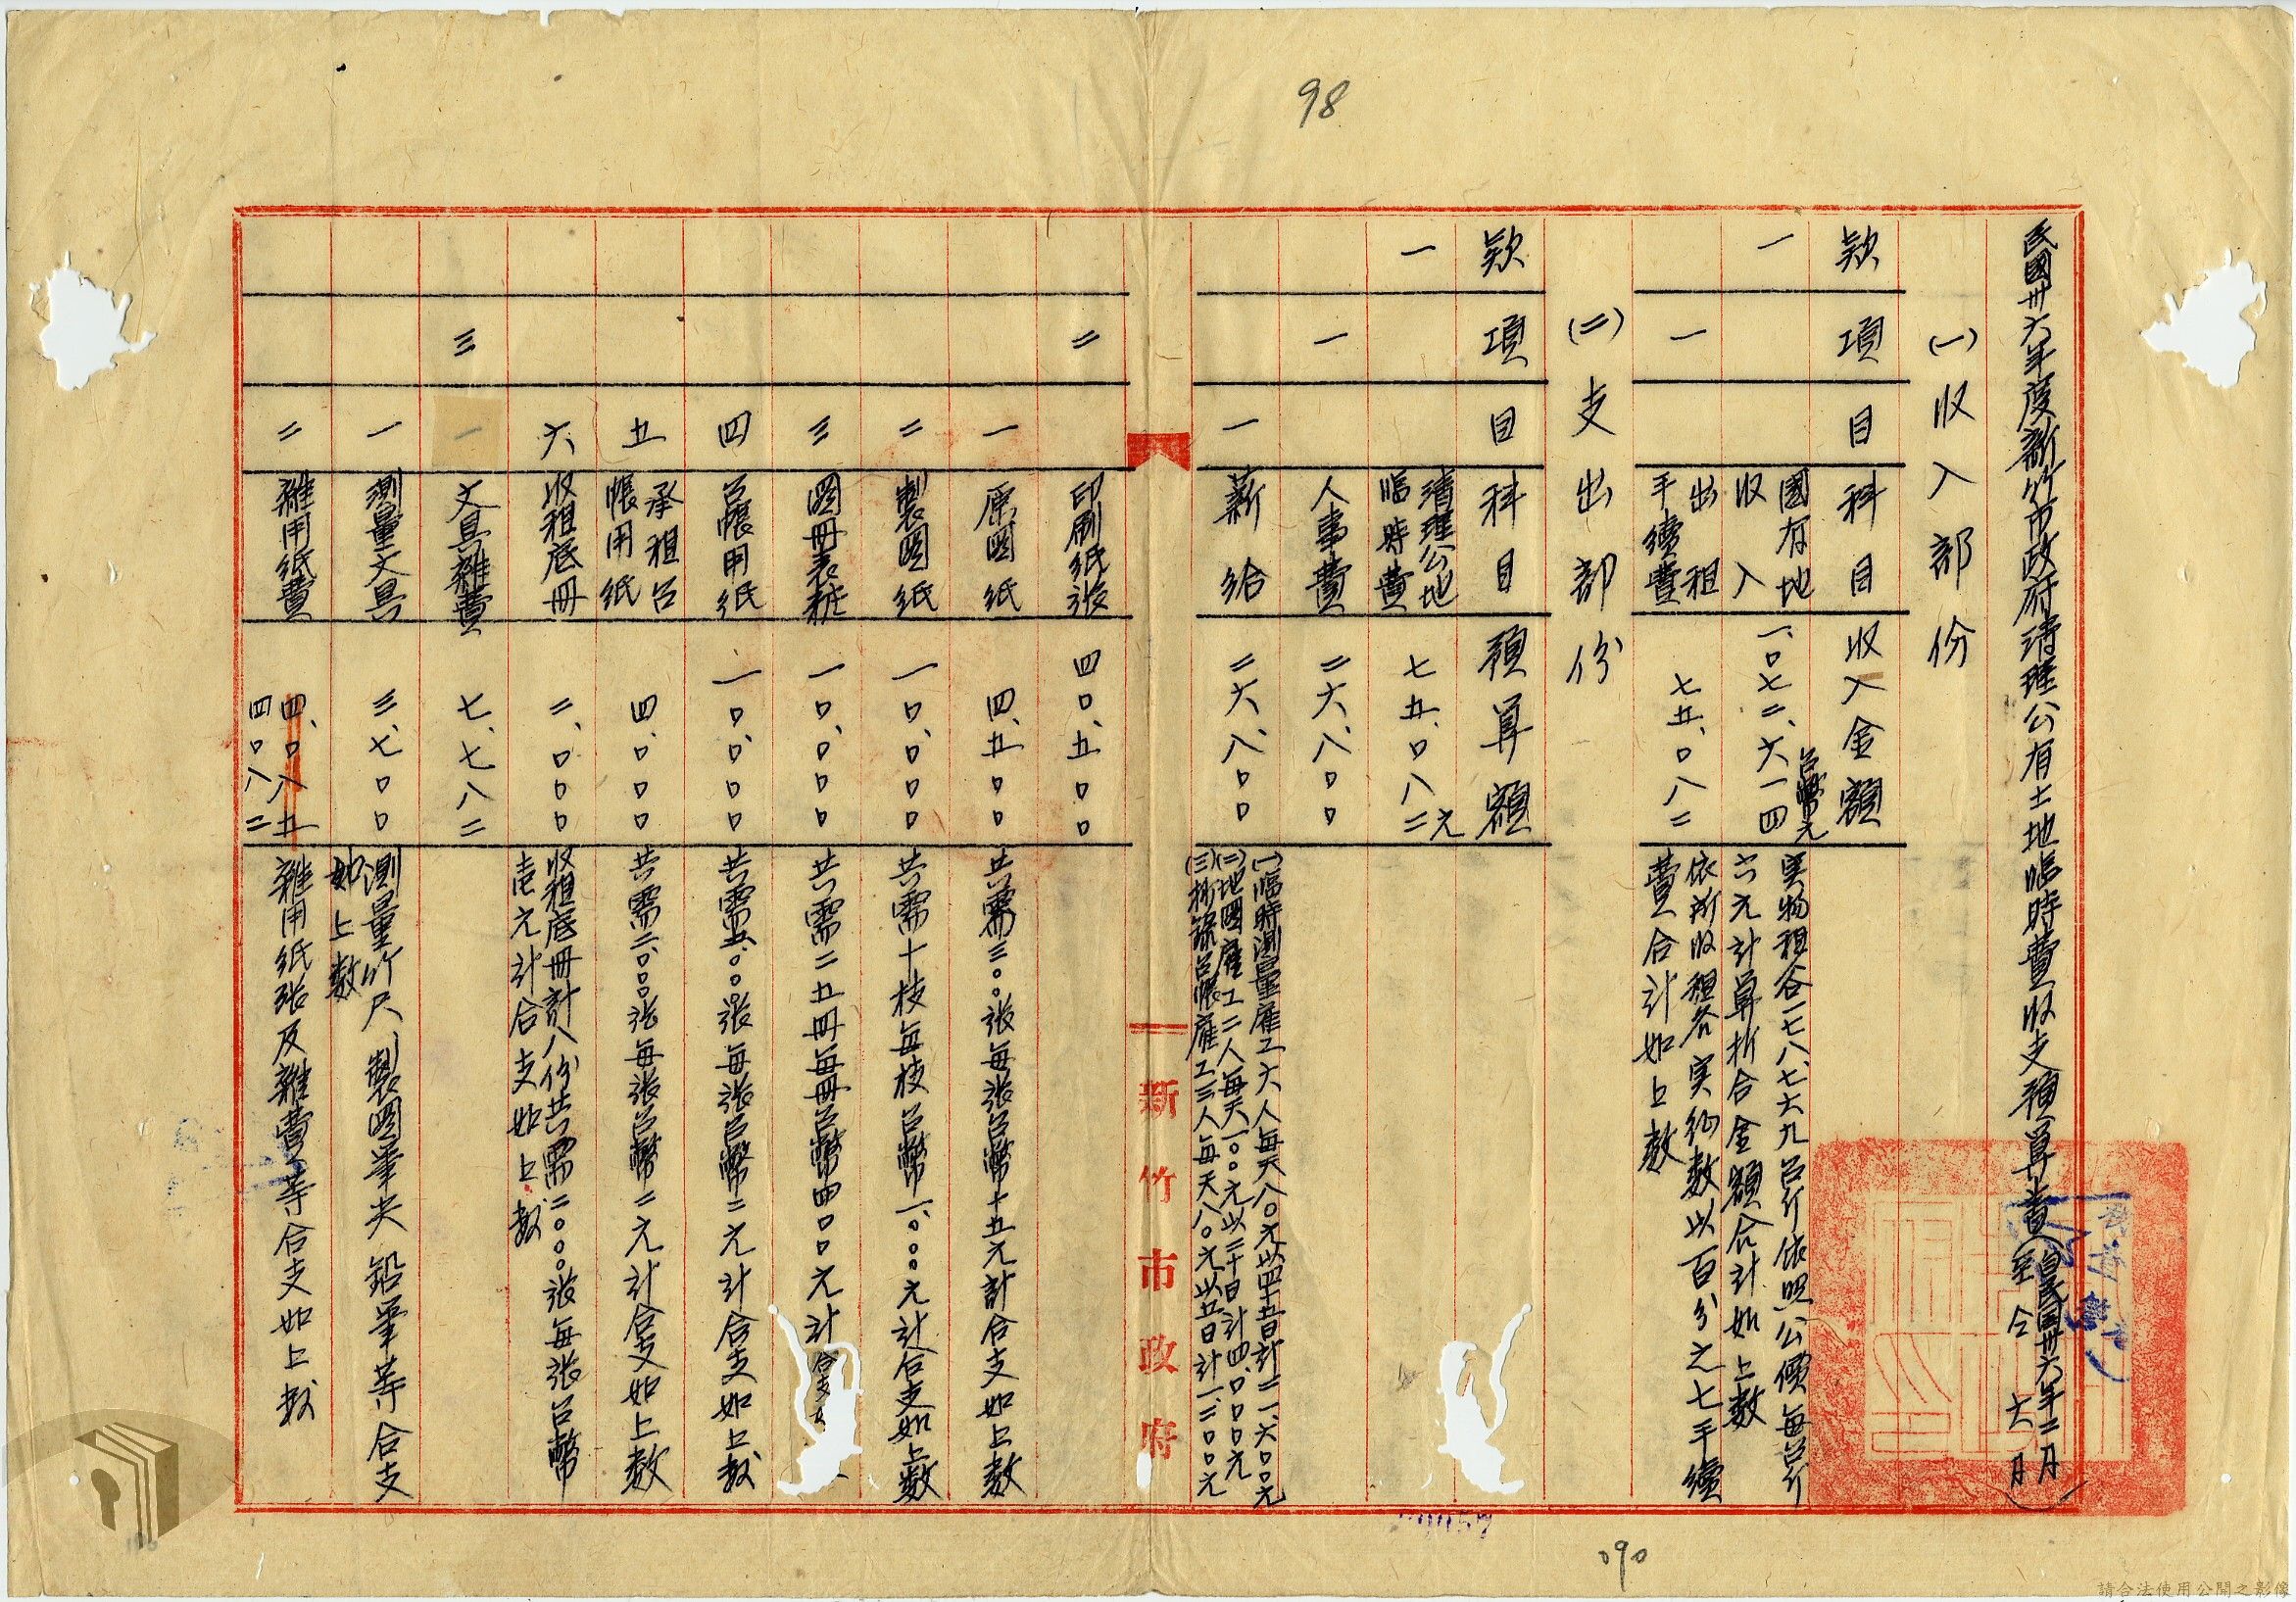 98
民國卅六年度新竹市政府清理公有土地臨時費收支預算書(自民國卅六年二月
至仝 六月)
(一)收入部份
款 項 目 科目 收入金額
一 國有地收入 一、〇七二、六一四 台幣元 実物租谷一七八、七六九台斤依照公價每台斤
六元計算折合金額合計如上數
一 出租手續費 七五、〇八二 依所收租谷実物數以百分之七手續
費合計如上數
(二)支出部份
款 項 目 科目 預算額
一 清理公地臨時費 七五、〇八二元
一 人事費 二六、八〇〇
一 薪給 二六、八〇〇 (一)臨時測量雇工六人每天八〇元以四十五日計二一、六〇〇元
(二)地圖雇工二人每天一〇〇元以二十日計四、〇〇〇元
(三)抄錄台帳雇工三人每天八〇元以五日計一、二〇〇元
新竹市政府
二 印刷紙張 四〇、五〇〇
一 原圖紙 四、五〇〇 共需三〇〇張每張台幣十五元計合支如上數
二 製圖紙 一〇、〇〇〇 共需十枝每枝台幣一、〇〇〇元計合支如上數
三 圖冊表粧 一〇、〇〇〇 共需二五冊每冊台幣四〇〇元計合支
四 台帳用紙 一〇、〇〇〇 共需五、〇〇〇張每張台幣二元計合支如上數
五 承租台帳用紙 四、〇〇〇 共需二、〇〇〇張每張台幣二元計合支如上數
六 收租底冊 二、〇〇〇 收租底冊計八份共需二〇〇〇張每張台幣
壱元計合支如上數
三 一 文具雜費 七、七八二
一 測量文具 三、七〇〇 測量竹尺製圖筆夾鉛筆等合支
如上數
二 雜用紙費 四、〇八五 四〇八二 雜用紙張及雜費等合支如上數
090
請合法使用公開之影像